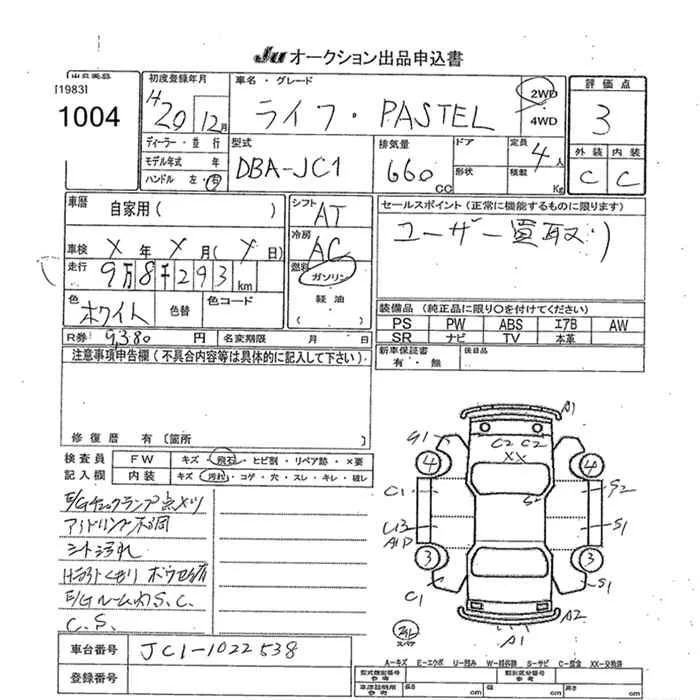 Ju オークション出品申込書
[1983]
1004
初度登録年月
H20 12月
車名・グレード
ライフ・PASTEL
2WD
4WD
評価点
3
外装 内装
C C
ディーラー・並行
モデル年式 年
ハンドル 左・右
型式
DBA-JC1
排気量
660 CC
ドア
形状
定員
4人
積載 Kg
車歴
自家用( )
車検 X年X月(X日)
走行
9万8千293km
色
ホワイト
色替
色コード
シフト
AT
冷房
AC
燃料
ガソリン
軽油
( )
セールスポイント(正常に機能するものに限ります)
ユーザー買取り
装備品(純正品に限り〇を付けてください)
PS PW ABS エアB AW
SR ナビ TV 本革
新車保証書
有・無
後日品
R券 9,380円
名変期限 月 日
注意事項申告欄(不具合内容等は具体的に記入して下さい)
修復歴 有〔箇所 〕
検査員
記入欄
FW キズ・飛石・ヒビ割・リペア跡・×要
内装 キズ・汚れ・コゲ・穴・スレ・キレ・破レ
E/Gチェックランプ点メツ
アイドリング不調
シート汚れ
E/Gルーム内S.C.
C.S.
A1
G1
C2 C2
XX
4
4
C1
G2
S
U3
S1
3
3
C1
S1
A2
A1
スペア
車台番号
JC1-1022538
登録番号
A-キズ E-エクボ U-凹み W-補修跡 S-サビ C-腐食 XX-交換済
型式指定番号
参考
類別区分番号
参考
車庫証明用
参考
長さ cm
幅 cm
高さ cm